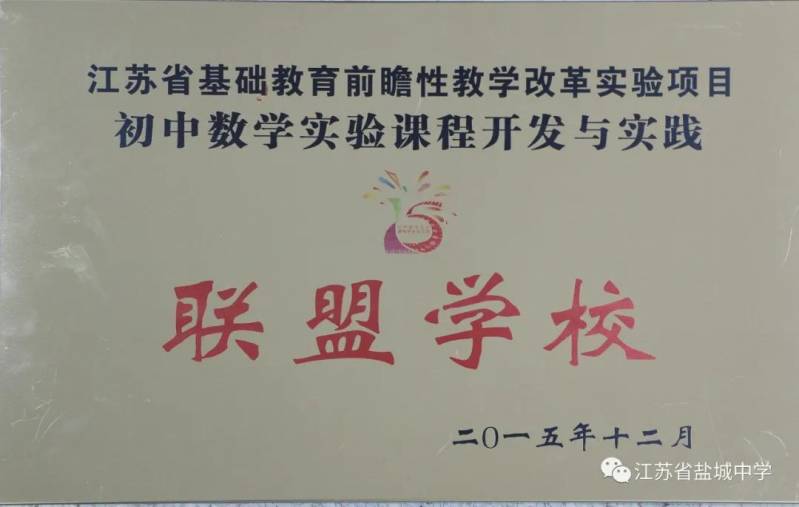 江苏省基础教育前瞻性教学改革实验项目
初中数学实验课程开发与实践
联盟学校
二〇一五年十二月
江苏省盐城中学